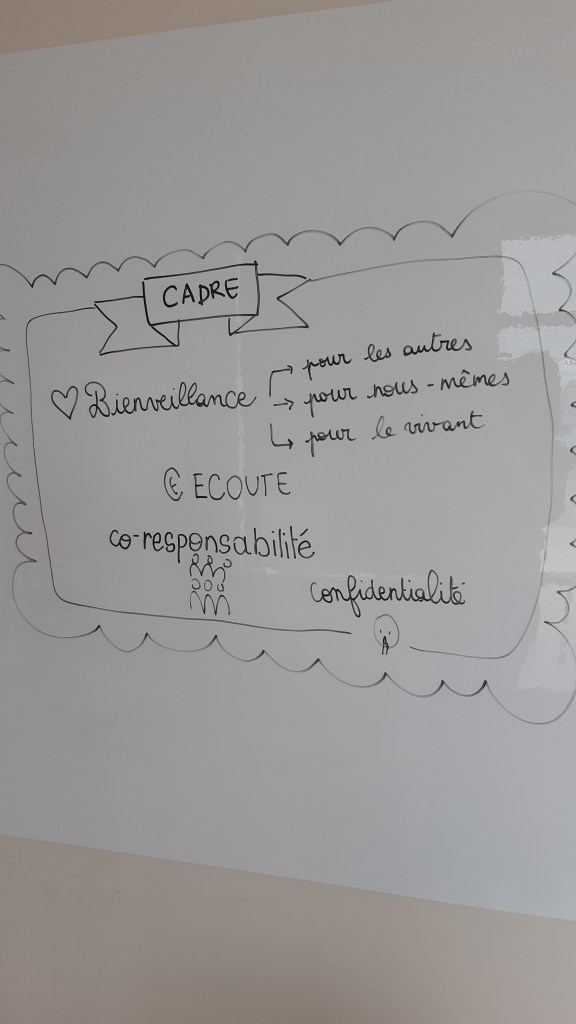 CADRE
Bienveillance
pour les autres
pour nous-mêmes
pour le vivant
ECOUTE
co-responsabilité
confidentialité